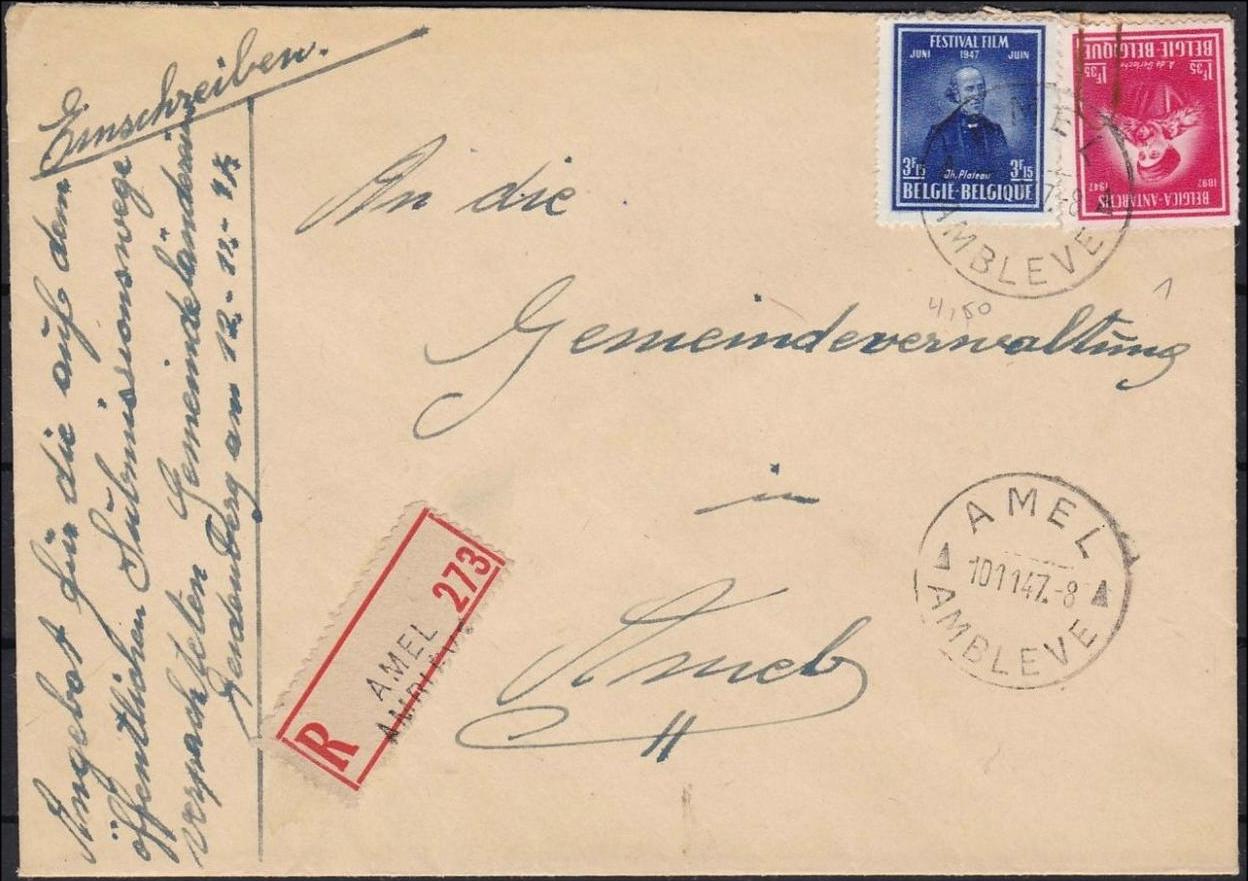 Einschreiben.
Angebot für die auf dem
öffentlichen Submissionswege
verpachteten Gemeindeländereien
am 12.-11.-47
An die
Gemeindeverwaltung
in
Amel
FESTIVAL FILM
JUNI 1947 JUIN
Jh. Plateau
3F15 3F15
BELGIE-BELGIQUE
BELGICA-ANTARCTIS
1897 1947
A. de Gerlache
1F35 1F35
BELGIE-BELGIQUE
AMEL
7.-8
AMBLEVE
4,50
AMEL
101147.-8
AMBLEVE
R
AMEL
273